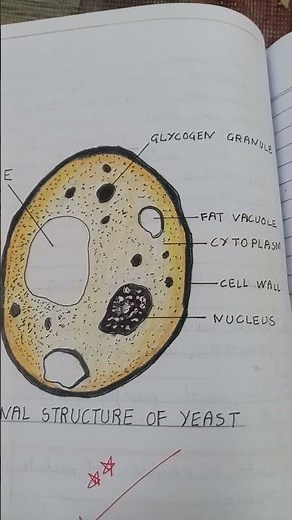 GLYCOGEN GRANULE
E
FAT VACUOLE
CYTOPLASM
CELL WALL
NUCLEUS
NAL STRUCTURE OF YEAST